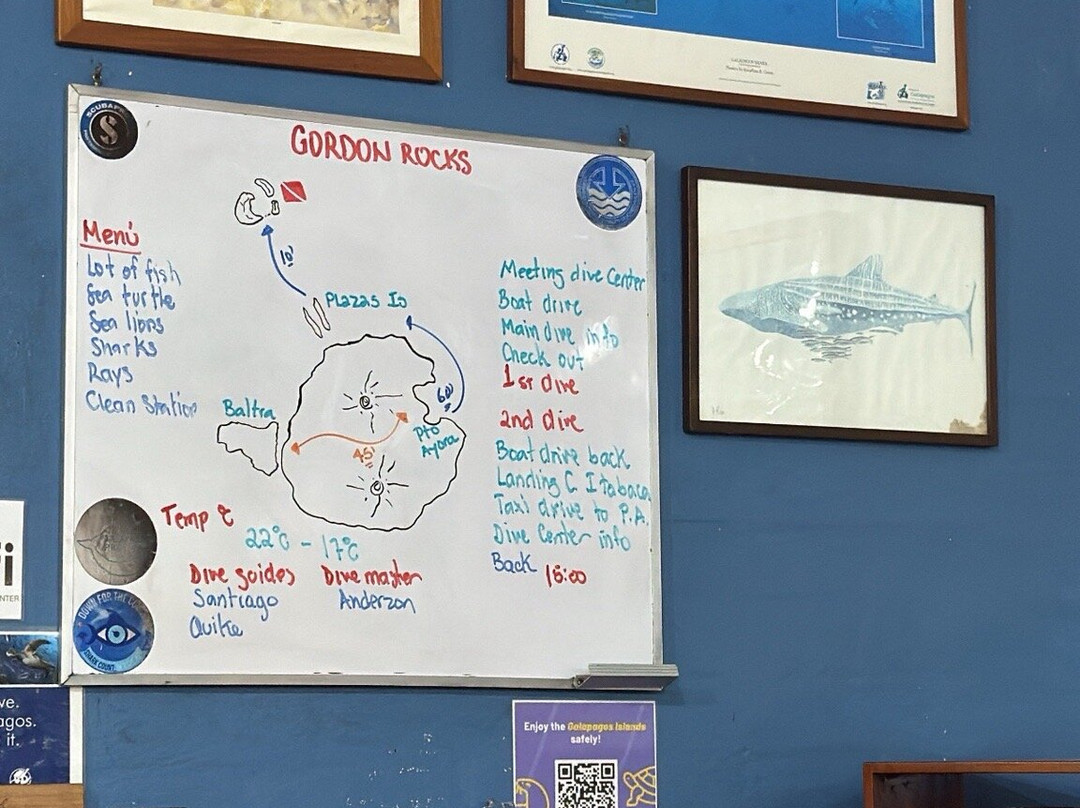 GORDON ROCKS
10'
Menú
Lot of fish
Sea turtle
Sea lions
Sharks
Rays
Clean Station
Plazas Is
60'
Baltra
Pto
Ayora
45'
Meeting dive Center
Boat drive
Main dive info
Check out
1st dive
2nd dive
Boat drive back
Landing C. Itabaca
Taxi drive to P.A.
Dive Center info
Back 15:00
Temp °C
22°C - 17°C
Dive guides Dive master
Santiago Anderzon
Quike
DOWN FOR THE
SHARK COUNT
NTER
ve.
agos.
it.
Enjoy the Galapagos Islands
safely!